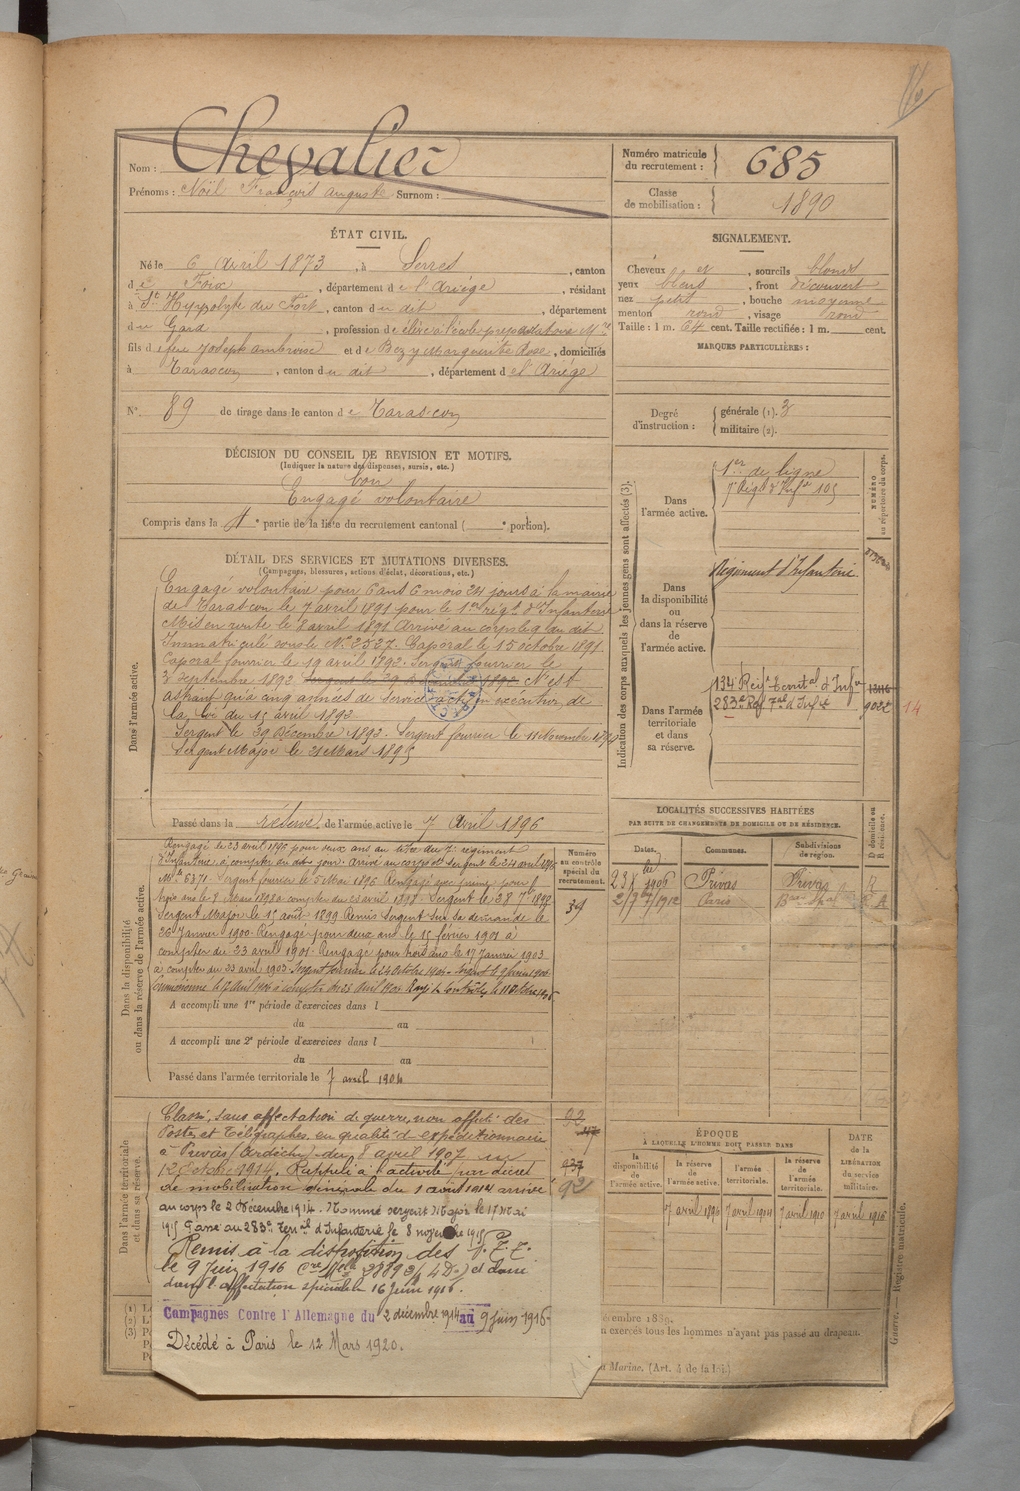 Nom : Chevalier
Prénoms : Noël François Auguste Surnom :
Numéro matricule du recrutement : 685
Classe de mobilisation : 1890
ÉTAT CIVIL.
Né le 6 avril 1873, à Serres, canton
de Foix, département de l'Ariège, résidant
à St Hyppolyte du Fort, canton du dit, département
du Gard, profession de élève à l'école préparatoire Mre
fils de feu Joseph Ambroise et de Bezy Marguerite Rose, domiciliés
à Tarascon, canton du dit, département de l'Ariège
N° 89 de tirage dans le canton de Tarascon
SIGNALEMENT.
Cheveux et, sourcils blonds
yeux bleus, front découvert
nez petit, bouche moyenne
menton rond, visage rond
Taille : 1 m. 64 cent. Taille rectifiée : 1 m. cent.
MARQUES PARTICULIÈRES :
Degré d'instruction : générale (1). 3
militaire (2).
DÉCISION DU CONSEIL DE REVISION ET MOTIFS.
(Indiquer la nature des dispenses, sursis, etc.)
bon
Engagé volontaire
Compris dans la partie de la liste du recrutement cantonal ( portion).
DÉTAIL DES SERVICES ET MUTATIONS DIVERSES.
(Campagnes, blessures, actions d'éclat, décorations, etc.)
Dans l'armée active.
Engagé volontaire pour 5 ans 6 mois 24 jours à la mairie
de Tarascon le 7 avril 1891 pour le 1er régt d'Infanterie
Mis en route le 8 avril 1891 Arrivé au corps le 9 au dit
Immatriculé sous le N° 2527. Caporal le 15 octobre 1891
Caporal fourrier le 19 avril 1892. Sergent fourrier le
3 septembre 1892 N'est
astreint qu'à cinq années de service actif en exécution de
la loi du 15 avril 1892
Sergent le 29 Décembre 1892. Sergent fourrier le 11 Novembre 1894
Sergent Major le 21 Mars 1895
Passé dans la réserve de l'armée active le 7 avril 1896
Indication des corps auxquels les jeunes gens sont affectés (3).
NUMÉRO au répertoire du corps.
Dans l'armée active.
1er de ligne
7e Régt d'Infie 105
Dans la disponibilité ou dans la réserve de l'armée active.
Régiment d'Infanterie.
Dans l'armée territoriale et dans sa réserve.
134 Régt Territal d'Infie
283e Rgt Tal d'Inf
9022 14
LOCALITÉS SUCCESSIVES HABITÉES
PAR SUITE DE CHANGEMENTS DE DOMICILE OU DE RÉSIDENCE.
Dates. Communes. Subdivisions de région. D domicile ou R résidence.
23 X 1906 Privas Privas R
2/7/1912 Paris
Dans la disponibilité ou dans la réserve de l'armée active.
Numéro au contrôle spécial du recrutement.
34
Rengagé le 23 avril 1896 pour deux ans au titre du 7e régiment
d'Infanterie, à compter du dit jour. Arrivé au corps et sergent le 24 avril 1896
Mle 6371. Sergent fourrier le 5 Mai 1896 Rengagé avec prime pour
trois ans le 8 Mars 1898 à compter du 23 avril 1898. Sergent le 28 7bre 1898
Sergent Major le 15 août 1899 Remis Sergent sur sa demande le
26 Janvier 1900. Rengagé pour deux ans le 15 février 1901 à
compter du 23 avril 1901. Rengagé pour trois ans le 17 Janvier 1903
à compter du 23 avril 1903.
A accompli une 1re période d'exercices dans l
du au
A accompli une 2e période d'exercices dans l
du au
Passé dans l'armée territoriale le 7 avril 1904
Dans l'armée territoriale et dans sa réserve.
Classé, sans affectation de guerre, non affecté des
Postes et Télégraphes, en qualité d'expéditionnaire
à Privas (Ardèche) du 8 avril 1907 au
12 Octobre 1914. Rappelé à l'activité par décret
de mobilisation générale du 1 août 1914 arrivé
au corps le 2 Décembre 1914. Nommé sergent Major le 17 Mai
1915 Passé au 283e Terrial d'Infanterie le 8 novembre 1915
Remis à la disposition des P.T.T.
le 9 Juin 1916
dans l'affectation spéciale le 16 Juin 1916.
Campagnes Contre l'Allemagne du 2 décembre 1914 au 9 juin 1916
Décédé à Paris le 12 Mars 1920.
92
ÉPOQUE
À LAQUELLE L'HOMME DOIT PASSER DANS
la disponibilité de l'armée active. la réserve de l'armée active. l'armée territoriale. la réserve de l'armée territoriale.
DATE DE LA LIBÉRATION du service militaire.
7 avril 1896 7 avril 1904 7 avril 1910 7 avril 1916
(1)
(2)
(3)
décembre 1889.
n exercés tous les hommes n'ayant pas passé au drapeau.
Marine. (Art. 4 de la loi.)
Guerre. — Registre matricule.